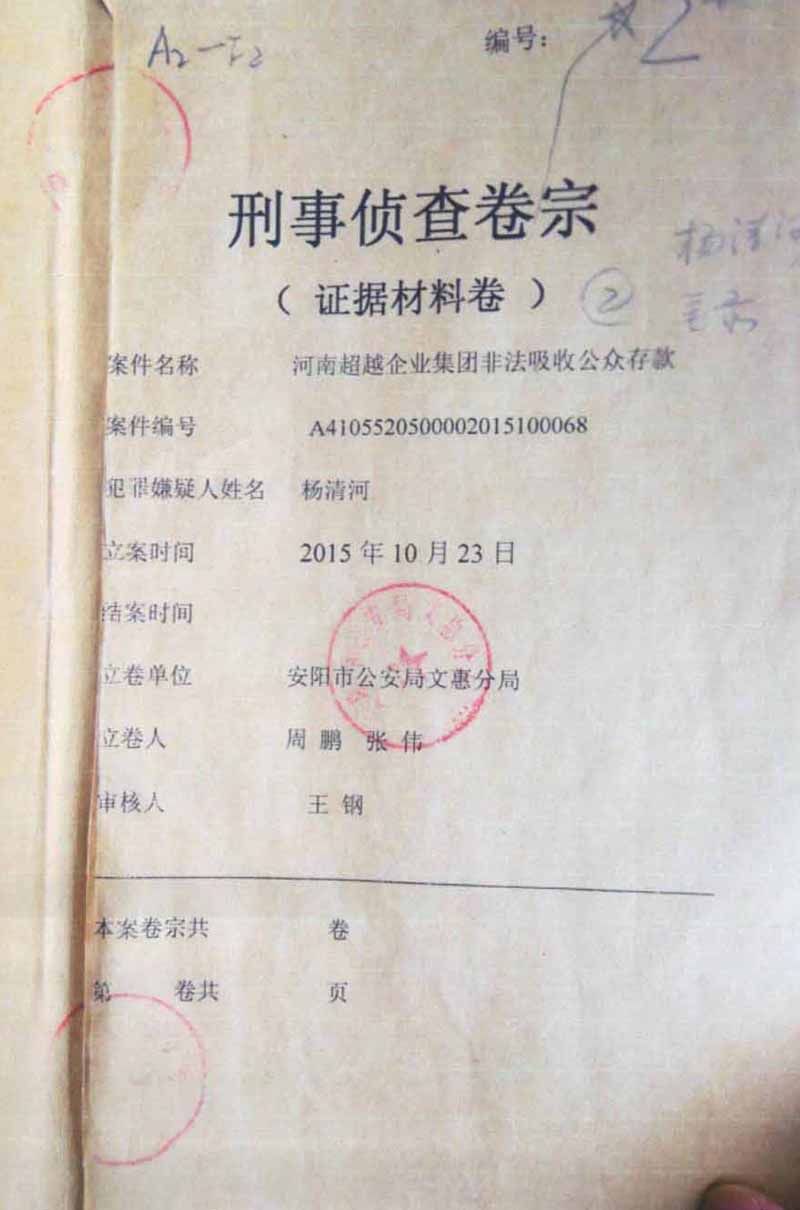 编号：
刑事侦查卷宗
（ 证据材料卷 ） ②
案件名称 河南超越企业集团非法吸收公众存款
案件编号 A4105520500002015100068
犯罪嫌疑人姓名 杨清河
立案时间 2015 年 10 月 23 日
结案时间
立卷单位 安阳市公安局文惠分局
立卷人 周 鹏 张 伟
审核人 王 钢
本案卷宗共 卷
第 卷共 页